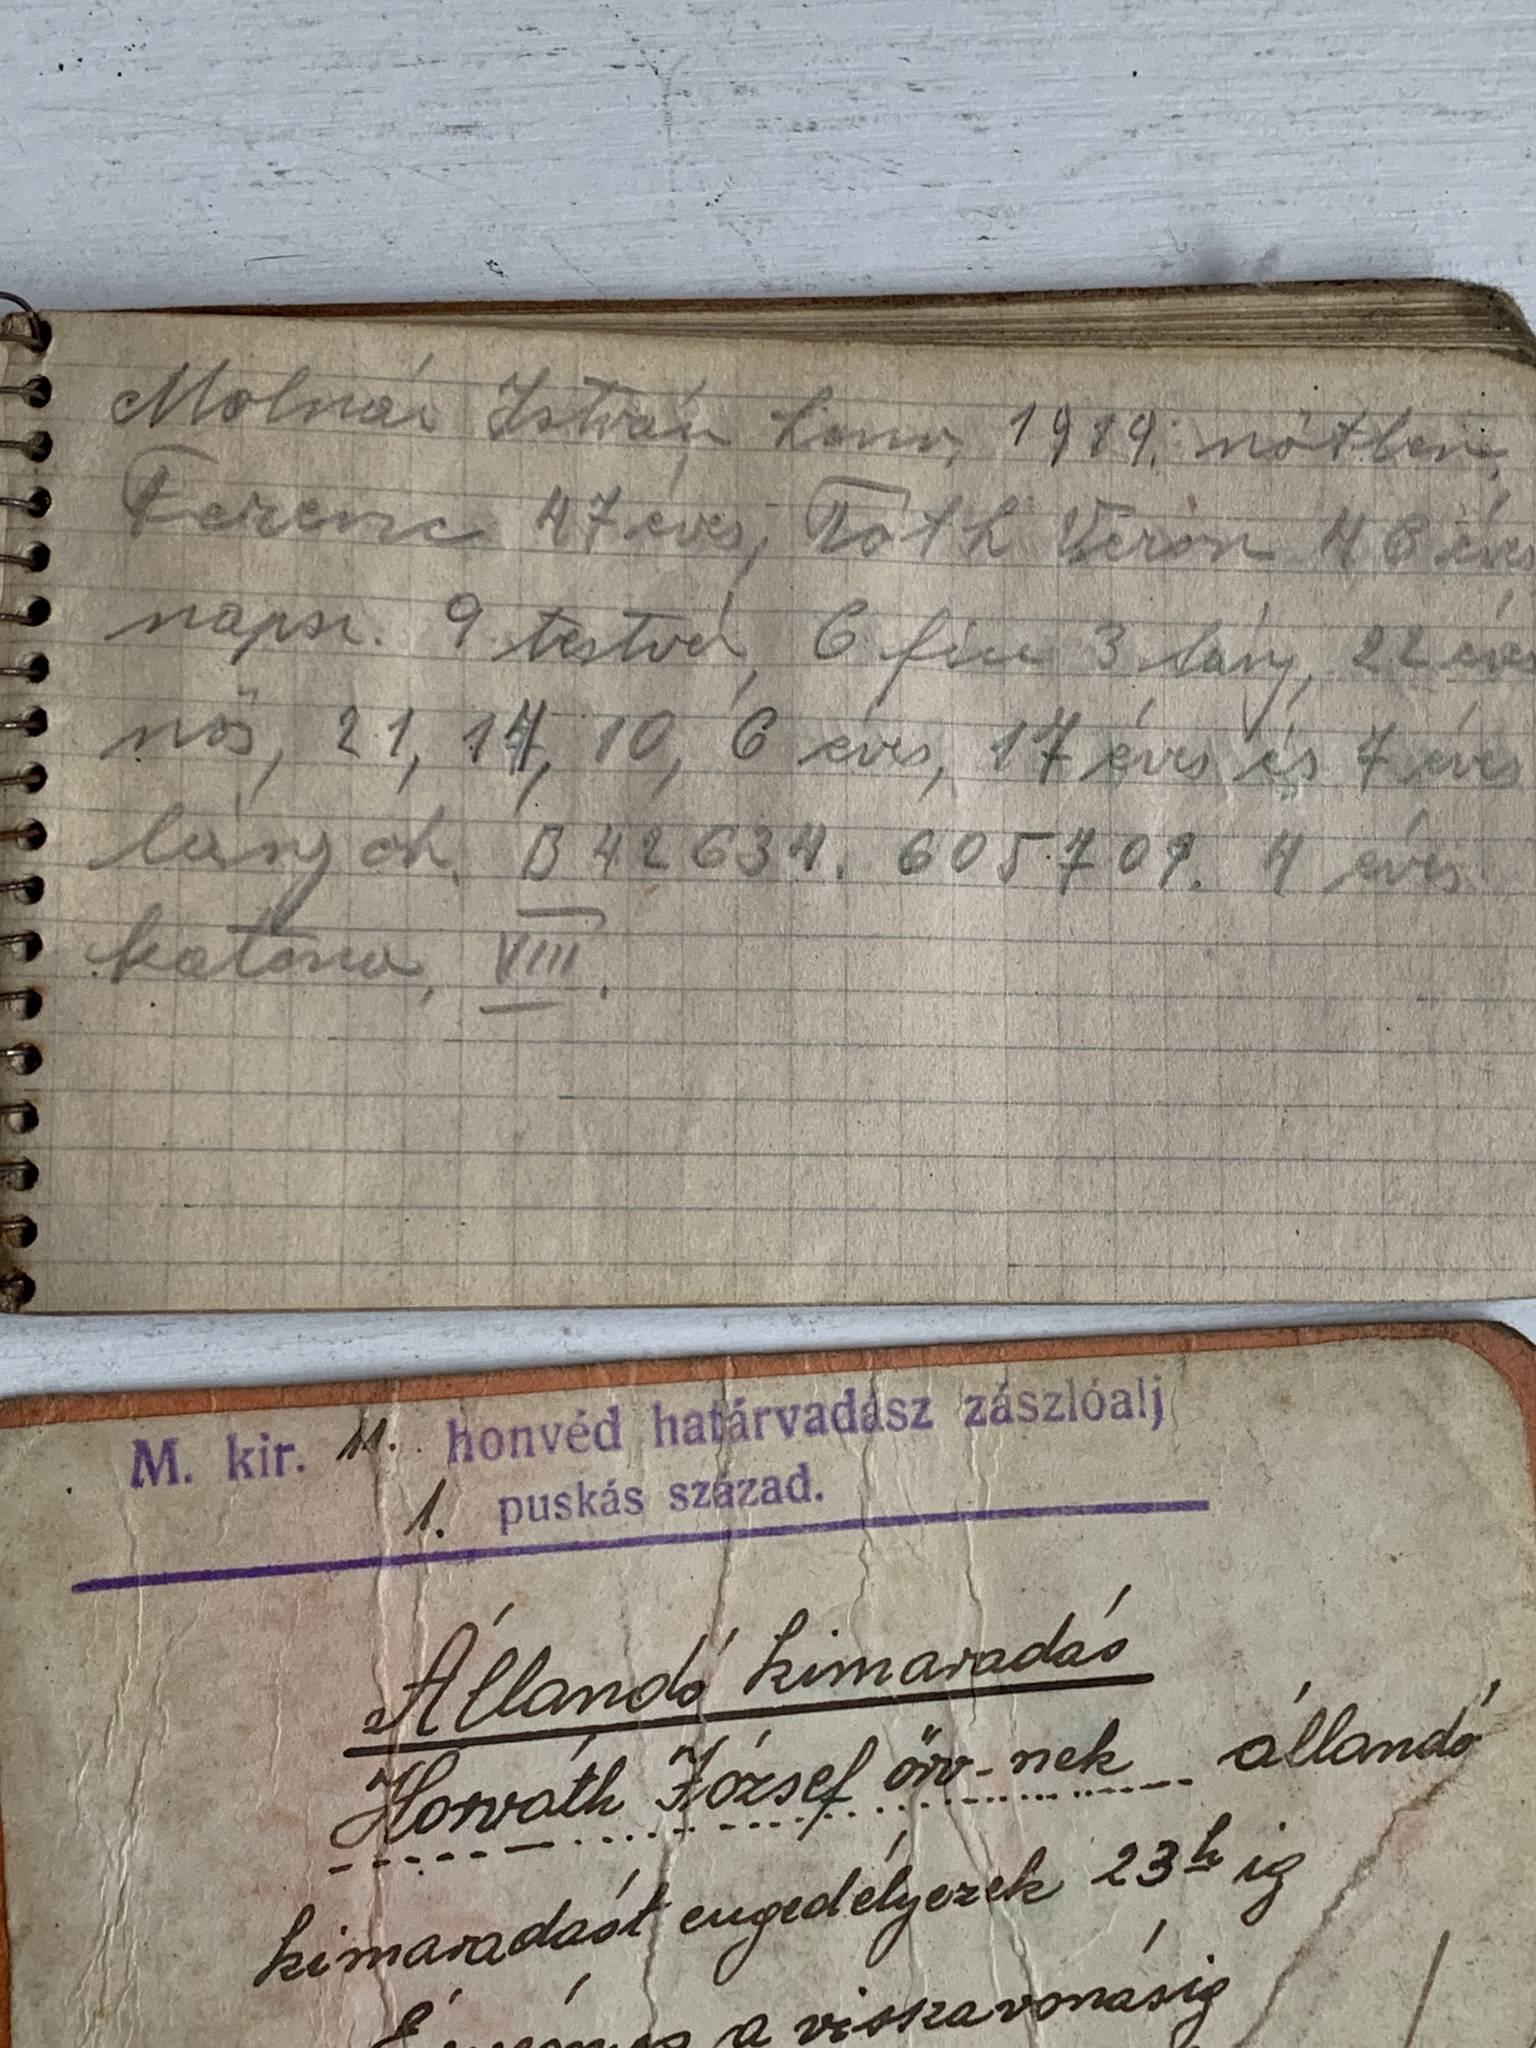 Molnár István honv, 1919. nőtlen,
Ferenc 47 éves, Tóth Veron 46 éves
napsz. 9 testvér, 6 fiu 3 lány, 22 éves
nős, 21, 14, 10, 6 éves, 17 éves és 7 éves
lányok. B 42634. 605709. 4 éves
katona, VIII.
M. kir. 11. honvéd határvadász zászlóalj
1. puskás század.
Állandó kimaradás
Horváth József örv-nek állandó
kimaradást engedélyezek 23h ig
Érvényes a visszavonásig